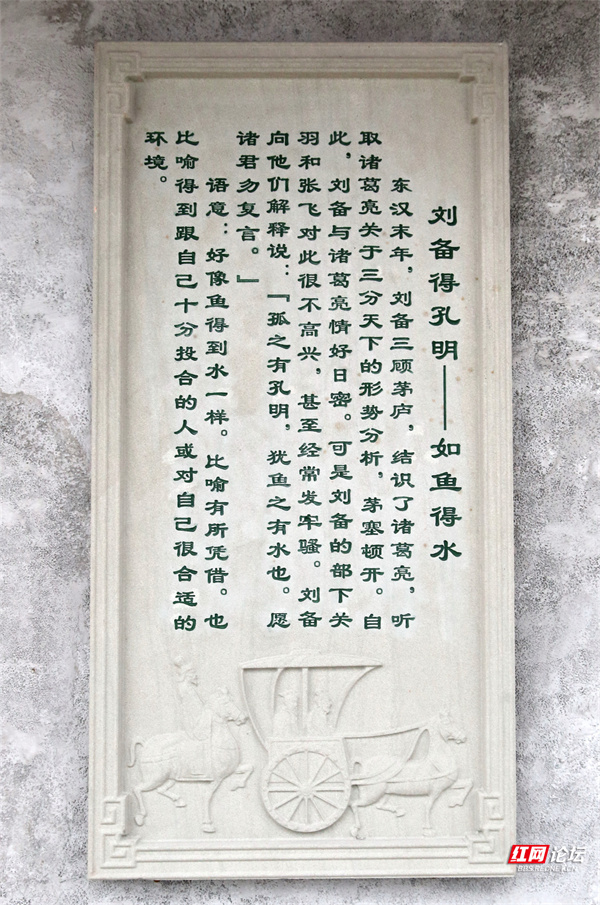 刘备得孔明——如鱼得水
东汉末年，刘备三顾茅庐，结识了诸葛亮，听
取诸葛亮关于三分天下的形势分析，茅塞顿开。自
此，刘备与诸葛亮情好日密。可是刘备的部下关
羽和张飞对此很不高兴，甚至经常发牢骚。刘备
向他们解释说：『孤之有孔明，犹鱼之有水也。愿
诸君勿复言。』
语意：好像鱼得到水一样。比喻有所凭借。也
比喻得到跟自己十分投合的人或对自己很合适的
环境。
红网论坛
BBS.REDNET.CN